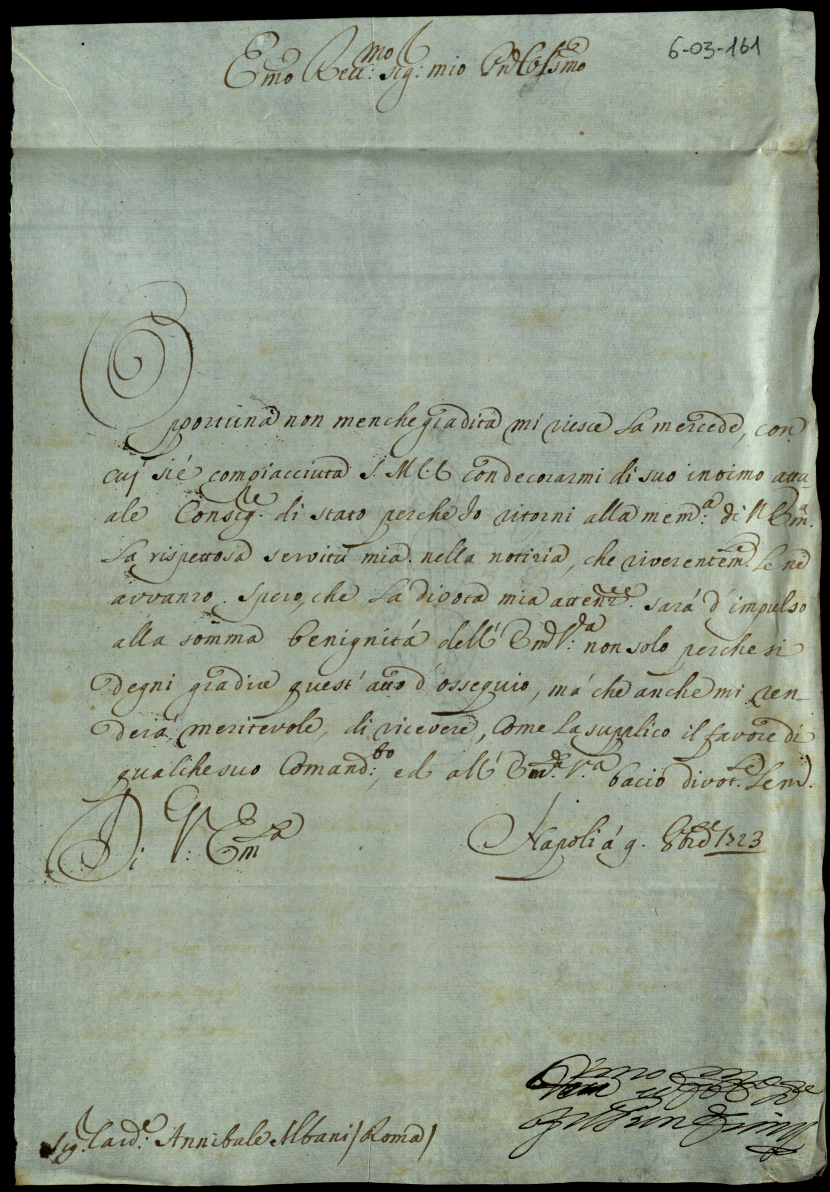 6-03-161
Emo Reu:mo Sig: mio
Opportuna non men che gradita mi riesce la mercede, con
cuj si é compiacciuta S. M. condecorarmi di suo intimo attu-
ale Consig.re di stato perche Io ritorni alla mem.a di V. Em.a
la rispettosa servitù mia nella notizia, che riverentem.te Le ne
avvanzo. Spero, che la divota mia attenz.e sará d'impulso
alla somma benignitá dell' Em.a V.a non solo perche si
degni gradire quest' atto d'ossequio, má che anche mi ren-
derá meritevole, di ricevere, Come La supplico il favore di
qualche suo Comand:to, ed all' Em.a V.a bacio divot.e Le m.
Di V: Em.a
Napoli á 9. 8bre 1723
Sig. Card.e Annibale Albani / Roma /